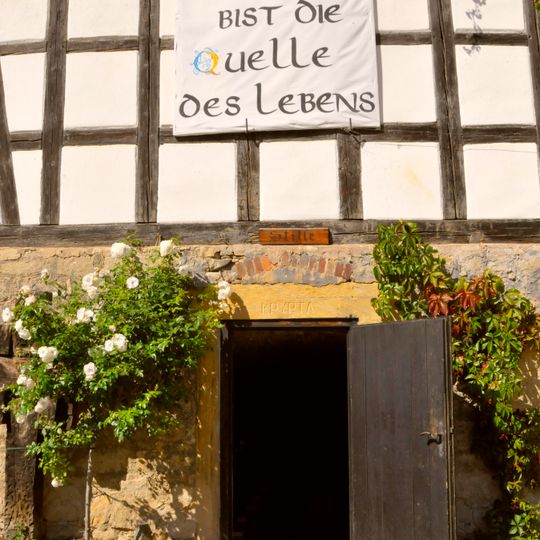 BIST DIE
QUELLE
DES LEBENS
Stille
KRYPTA